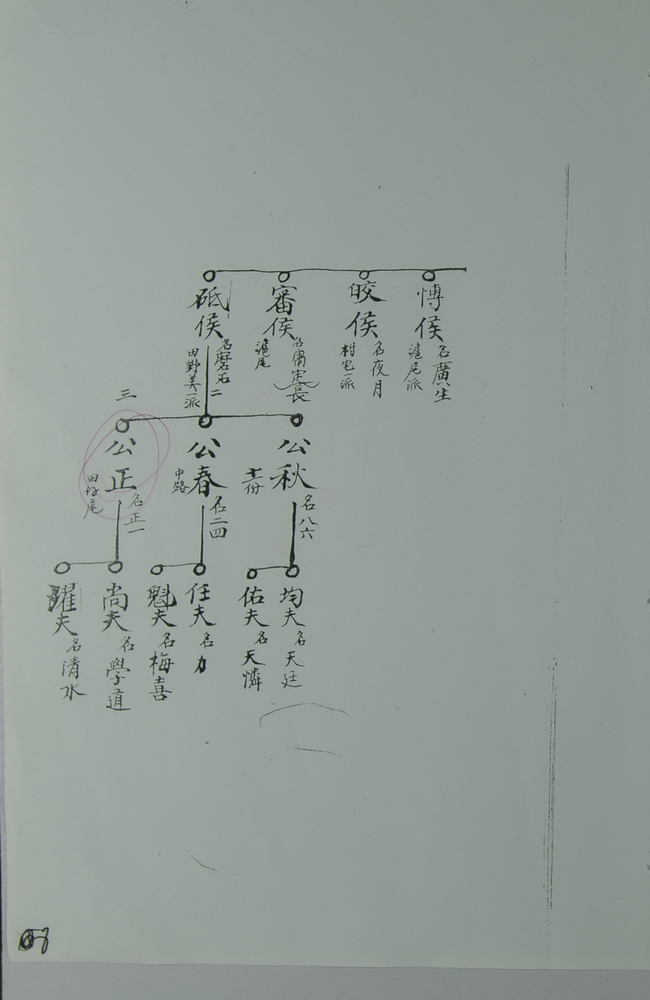 愽侯
名廣生
滬尾派
皎侯
名夜月
村宅派
審侯
滬尾
砥侯
名磨石
田野美派
二
三
公秋
名八六
公春
名二四
中路
公正
名正一
田仔尾
均夫
名天廷
佑夫
名天憐
任夫
名力
魁夫
名梅喜
尚夫
名學道
躍夫
名清水